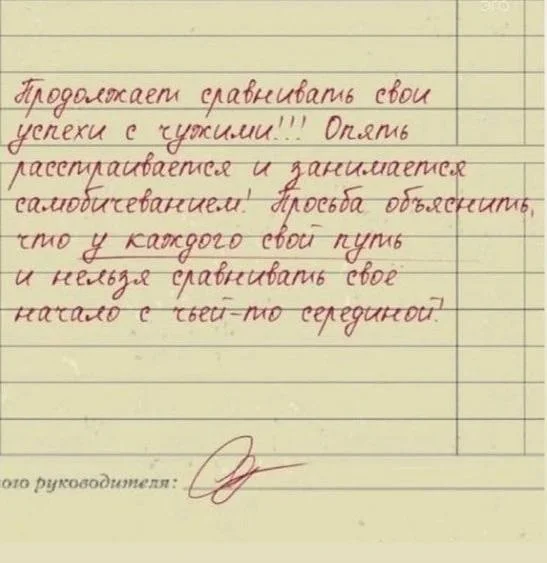 это
Продолжает сравнивать свои
успехи с чужими!!! Опять
расстраивается и занимается
самобичеванием! Просьба объяснить,
что у каждого свой путь
и нельзя сравнивать своё
начало с чьей-то серединой!
ого руководителя: